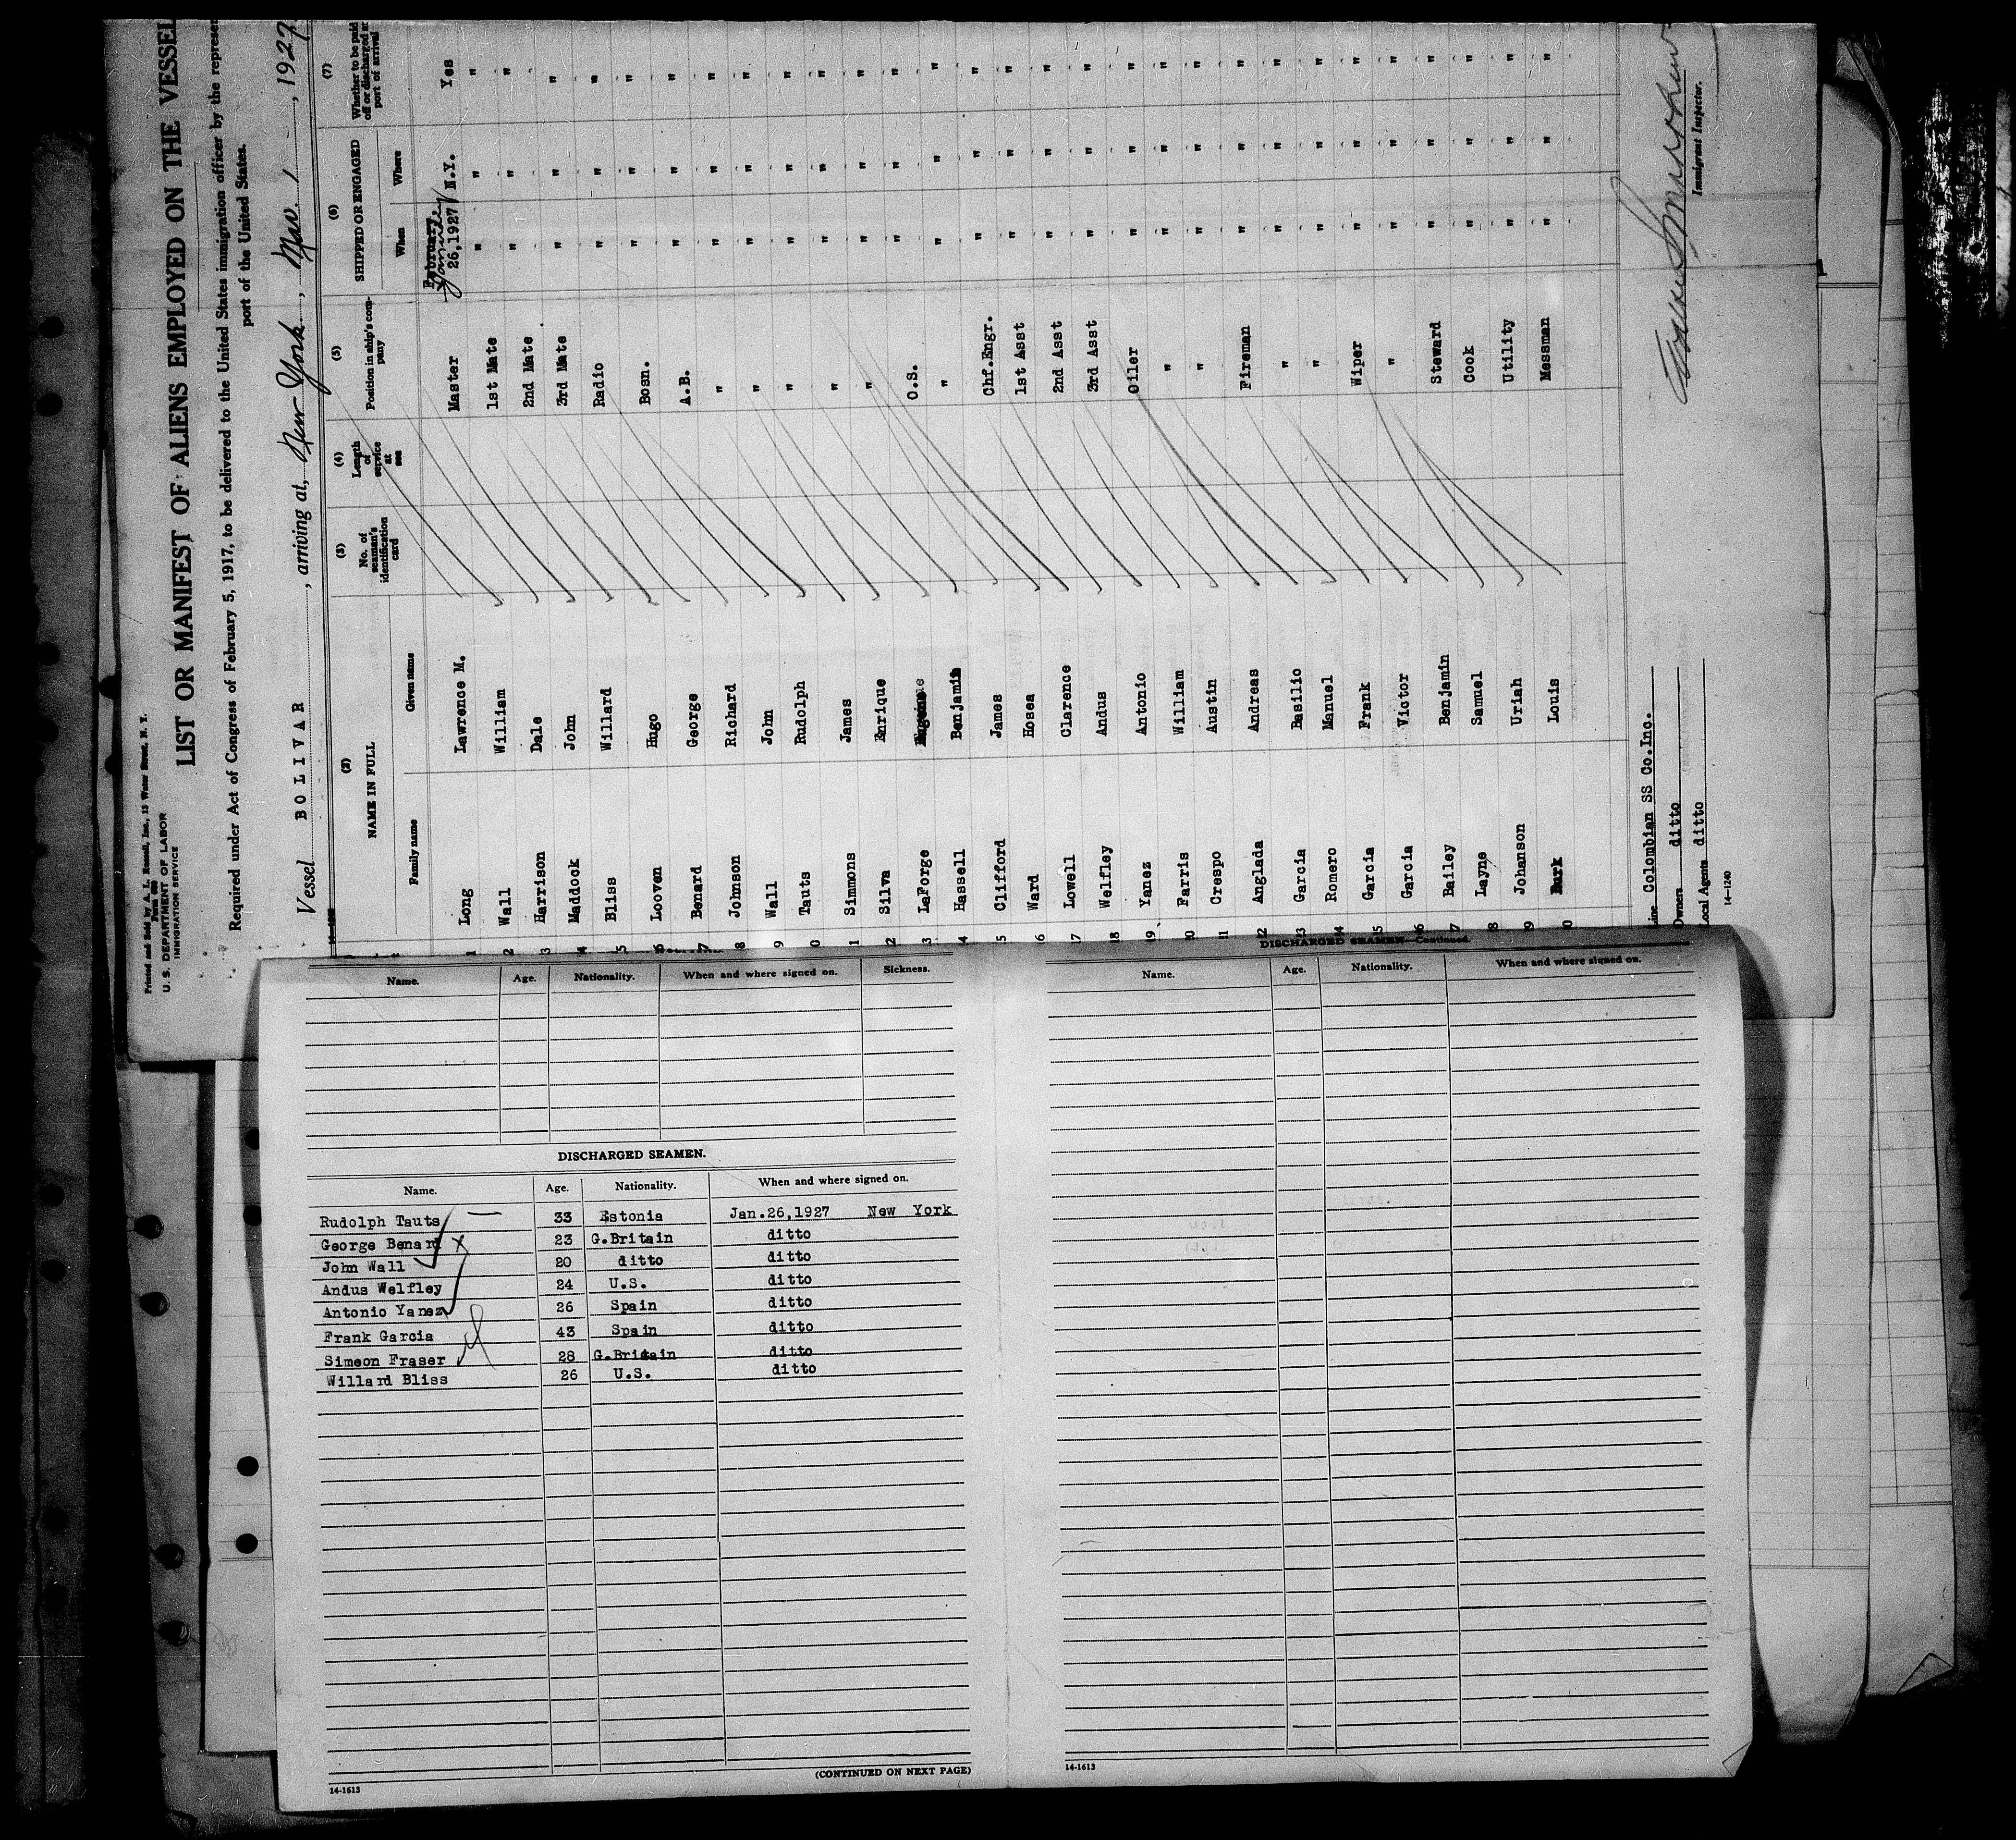 Printed and Sold by A. L. Russell, Inc., 13 Water Street, N. Y.
U. S. DEPARTMENT OF LABOR
IMMIGRATION SERVICE
LIST OR MANIFEST OF ALIENS EMPLOYED ON THE VESSEL
Required under Act of Congress of February 5, 1917, to be delivered to the United States immigration officer by the represen
port of the United States.
Vessel BOLIVAR, arriving at, New York, Mar. 1, 1927
(2) (3) (4) (5) (6) (7)
NAME IN FULL No. of seaman's identification card Length of service at sea Position in ship's company SHIPPED OR ENGAGED Whether to be paid off or discharged at port of arrival
Family name Given name When Where
February
January
1 Long Lawrence M. Master 26,1927 N.Y. Yes
2 Wall William 1st Mate " " "
3 Harrison Dale 2nd Mate " " "
4 Maddock John 3rd Mate " " "
5 Bliss Willard Radio " " "
6 Looven Hugo Bosn. " " "
7 Benard George A.B. " " "
8 Johnson Richard " " " "
9 Wall John " " " "
0 Tats Rudolph " " " "
1 Simmons James " " " "
2 Silva Enrique " " " "
3 LaForge Eugene O.S. " " "
4 Hassell Benjamin " " " "
5 Clifford James Chf.Engr. " " "
6 Ward Hosea 1st Asst " " "
17 Lowell Clarence 2nd Asst " " "
18 Welfley Andus 3rd Asst " " "
19 Yanez Antonio Oiler " " "
0 Farris William " " " "
1 Crespo Austin " " " "
2 Anglada Andreas Fireman " " "
3 Garcia Basilio " " " "
4 Romero Manuel " " " "
5 Garcia Frank Wiper " " "
6 Garcia Victor " " " "
7 Bailey Benjamin Steward " " "
8 Layne Samuel Cook " " "
9 Johanson Uriah Utility " " "
0 Burk Louis Messman " " "
Line Colombian SS Co.Inc.
Owners ditto
Local Agents ditto
Immigrant Inspector.
14-1240
Name. Age. Nationality. When and where signed on. Sickness.
DISCHARGED SEAMEN.
Name. Age. Nationality. When and where signed on.
Rudolph Tauts 33 Estonia Jan.26,1927 New York
George Benard 23 G.Britain ditto
John Wall 20 ditto ditto
Andus Welfley 24 U.S. ditto
Antonio Yanez 26 Spain ditto
Frank Garcia 43 Spain ditto
Simeon Fraser 28 G.Britain ditto
Willard Bliss 26 U.S. ditto
(CONTINUED ON NEXT PAGE)
14-1613
DISCHARGED SEAMEN—Continued.
Name. Age. Nationality. When and where signed on.
14-1613